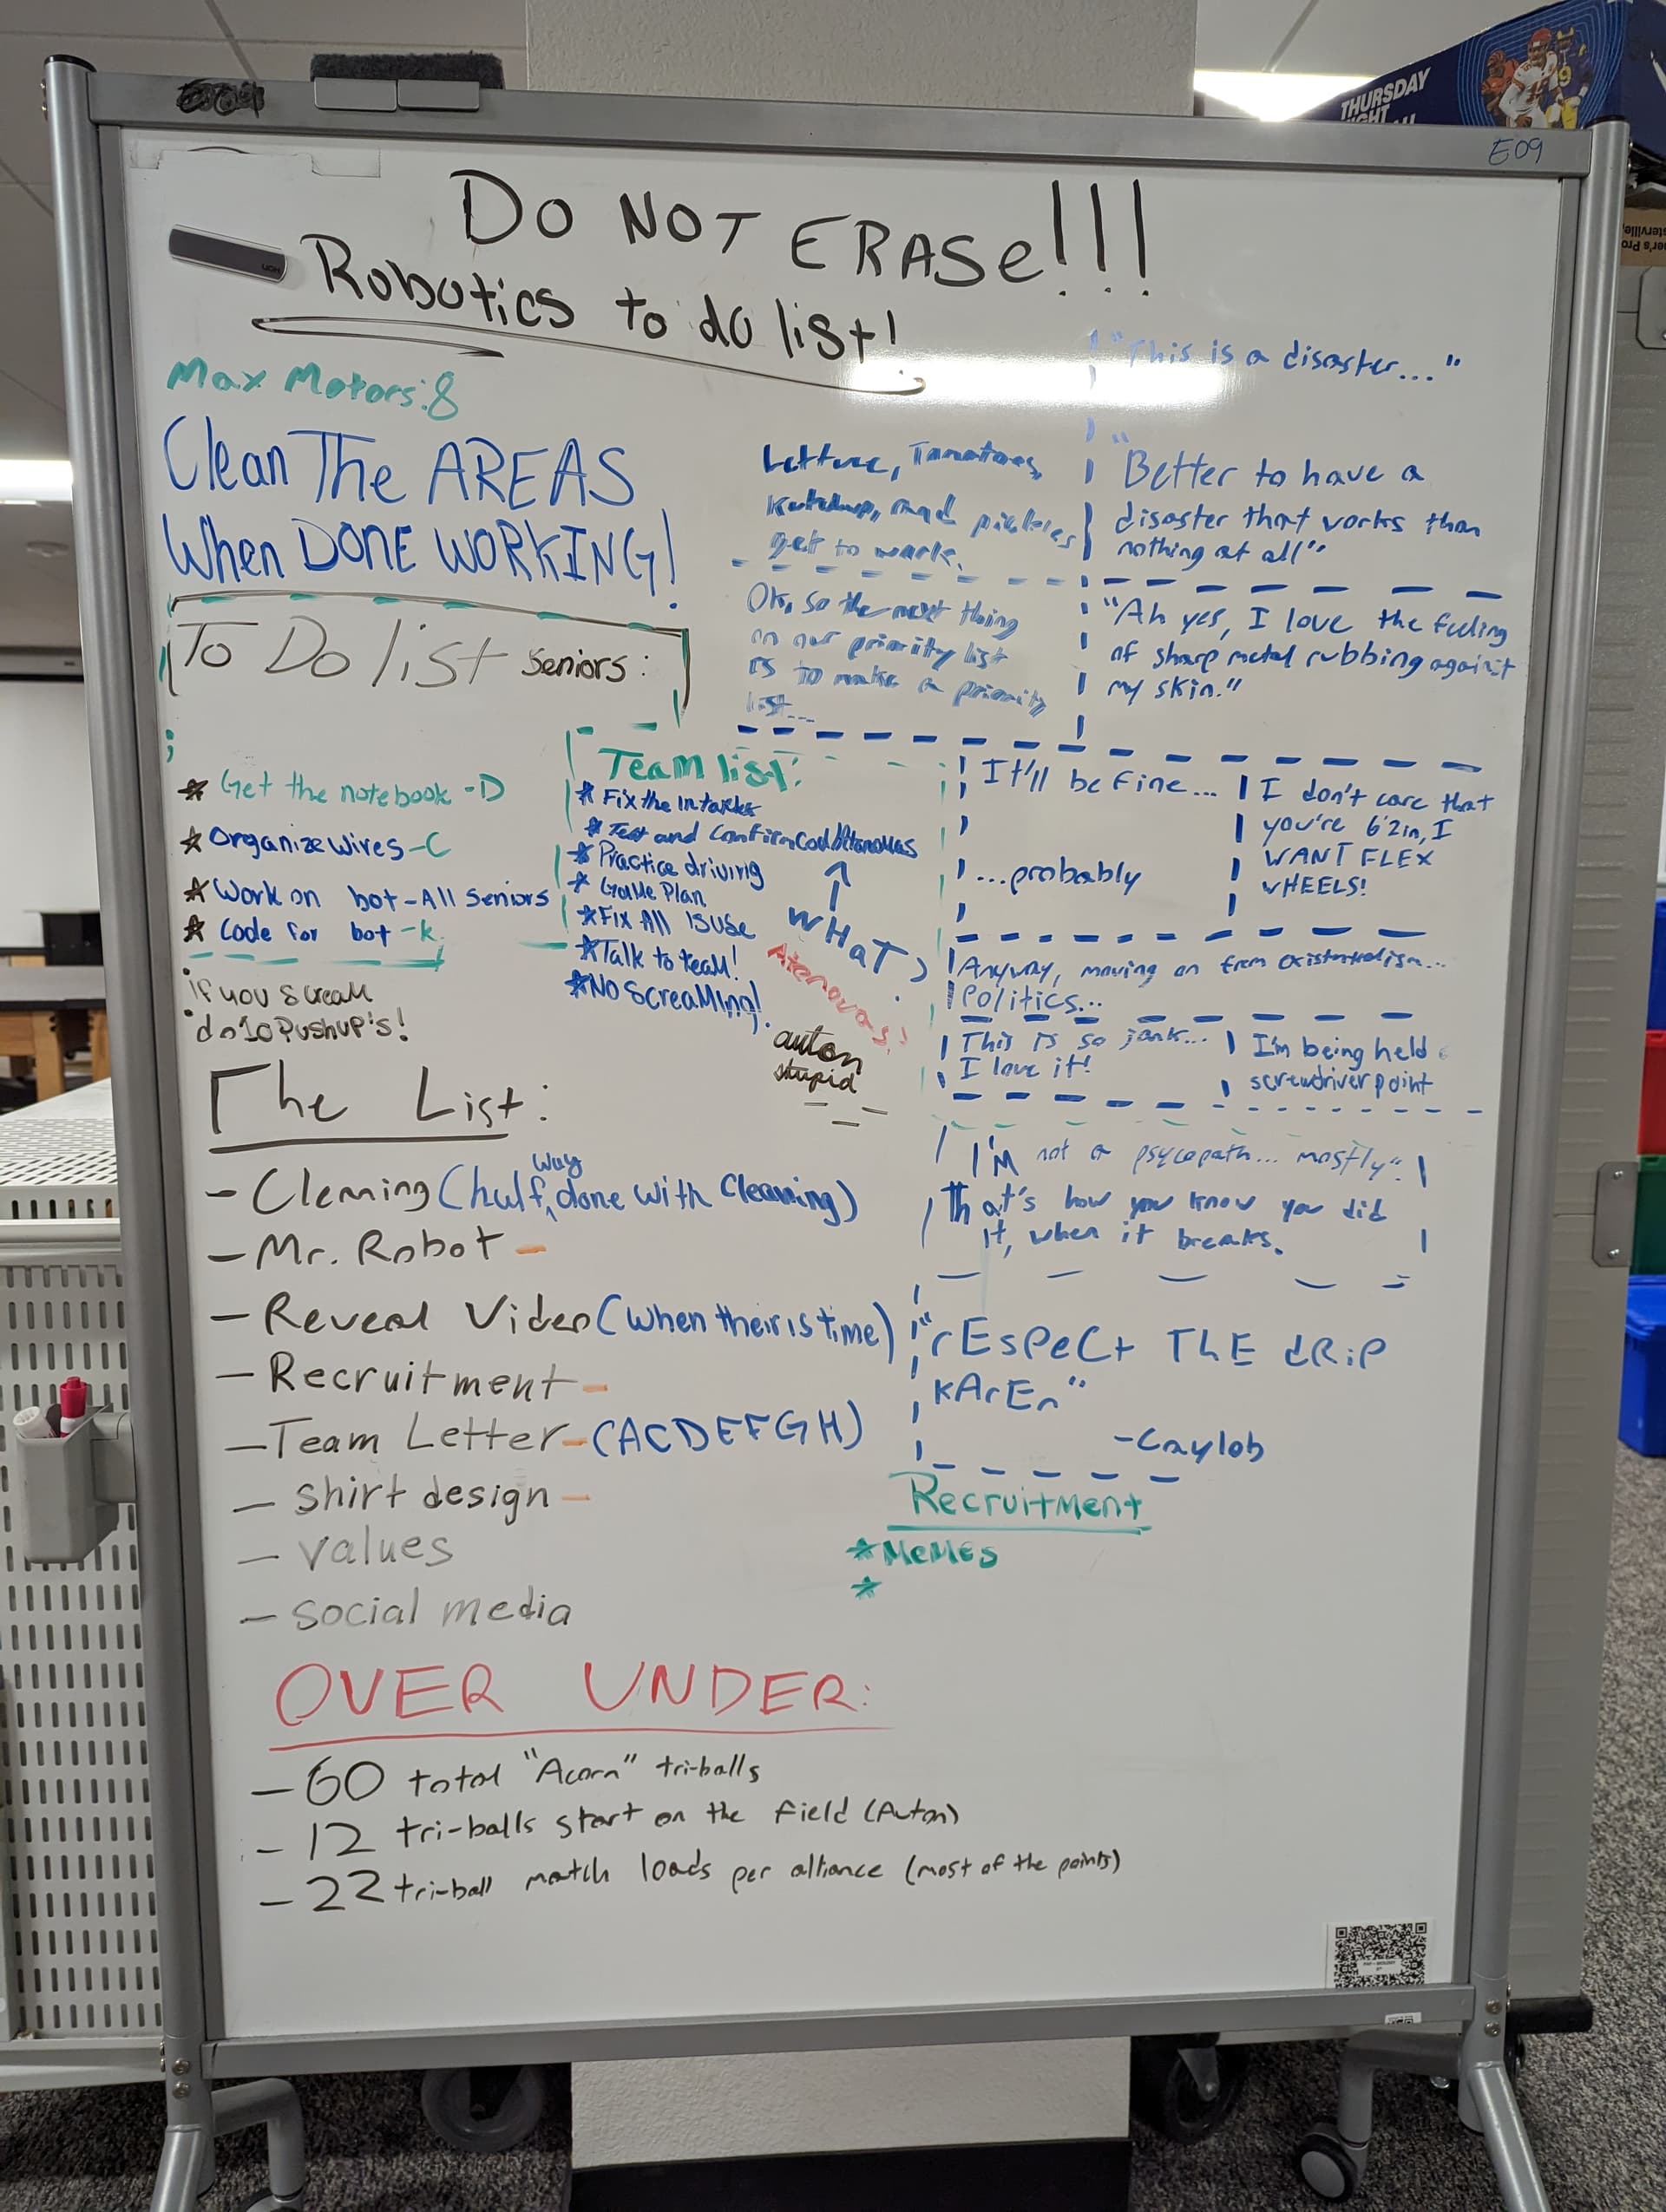 THURSDAY
E09
DO NOT ERASe!!!
Robotics to do list!
Max Motors:8
Clean The AREAS
When DONE WORKING!
To Do list seniors:
* Get the notebook -D
* Organize wires -C
* Work on bot - All Seniors
* Code for bot -k
if you scream
do 10 Pushup's!
Team list:
* Fix the Intakes
* Test and Confirm
* Practice driving
* Game Plan
* Fix All ISUSe
* Talk to team!
* No ScreaMIng!
WHaT
auton
stupid
"This is a disaster..."
Lettuce, Tomatoes,
Ketchup, and pickles
get to work.
"Better to have a
disaster that works than
nothing at all"
Ok, so the next thing
on our priority list
is to make a priority
list...
"Ah yes, I love the feeling
of sharp metal rubbing against
my skin."
It'll be fine...
...probably
I don't care that
you're 6'2in, I
WANT FLEX
WHEELS!
Anyway, moving on from
Politics...
This is so jank...
I love it!
I'm being held
screwdriver point
I'M not a psycopath... mostly"
That's how you know you did
it, when it breaks.
"rEsPeCt ThE dRiP
kArEn"
-Caylob
The List:
- (half way done with Cleaning)
- Mr. Robot -
- Reveal Video (when their is time)
- Recruitment -
- Team Letter - (ACDEFGH)
- shirt design -
- values
- social media
Recruitment
* MeMes
*
OVER UNDER:
- 60 total "Acorn" tri-balls
- 12 tri-balls start on the field (Auton)
- 22 tri-ball match loads per alliance (most of the points)